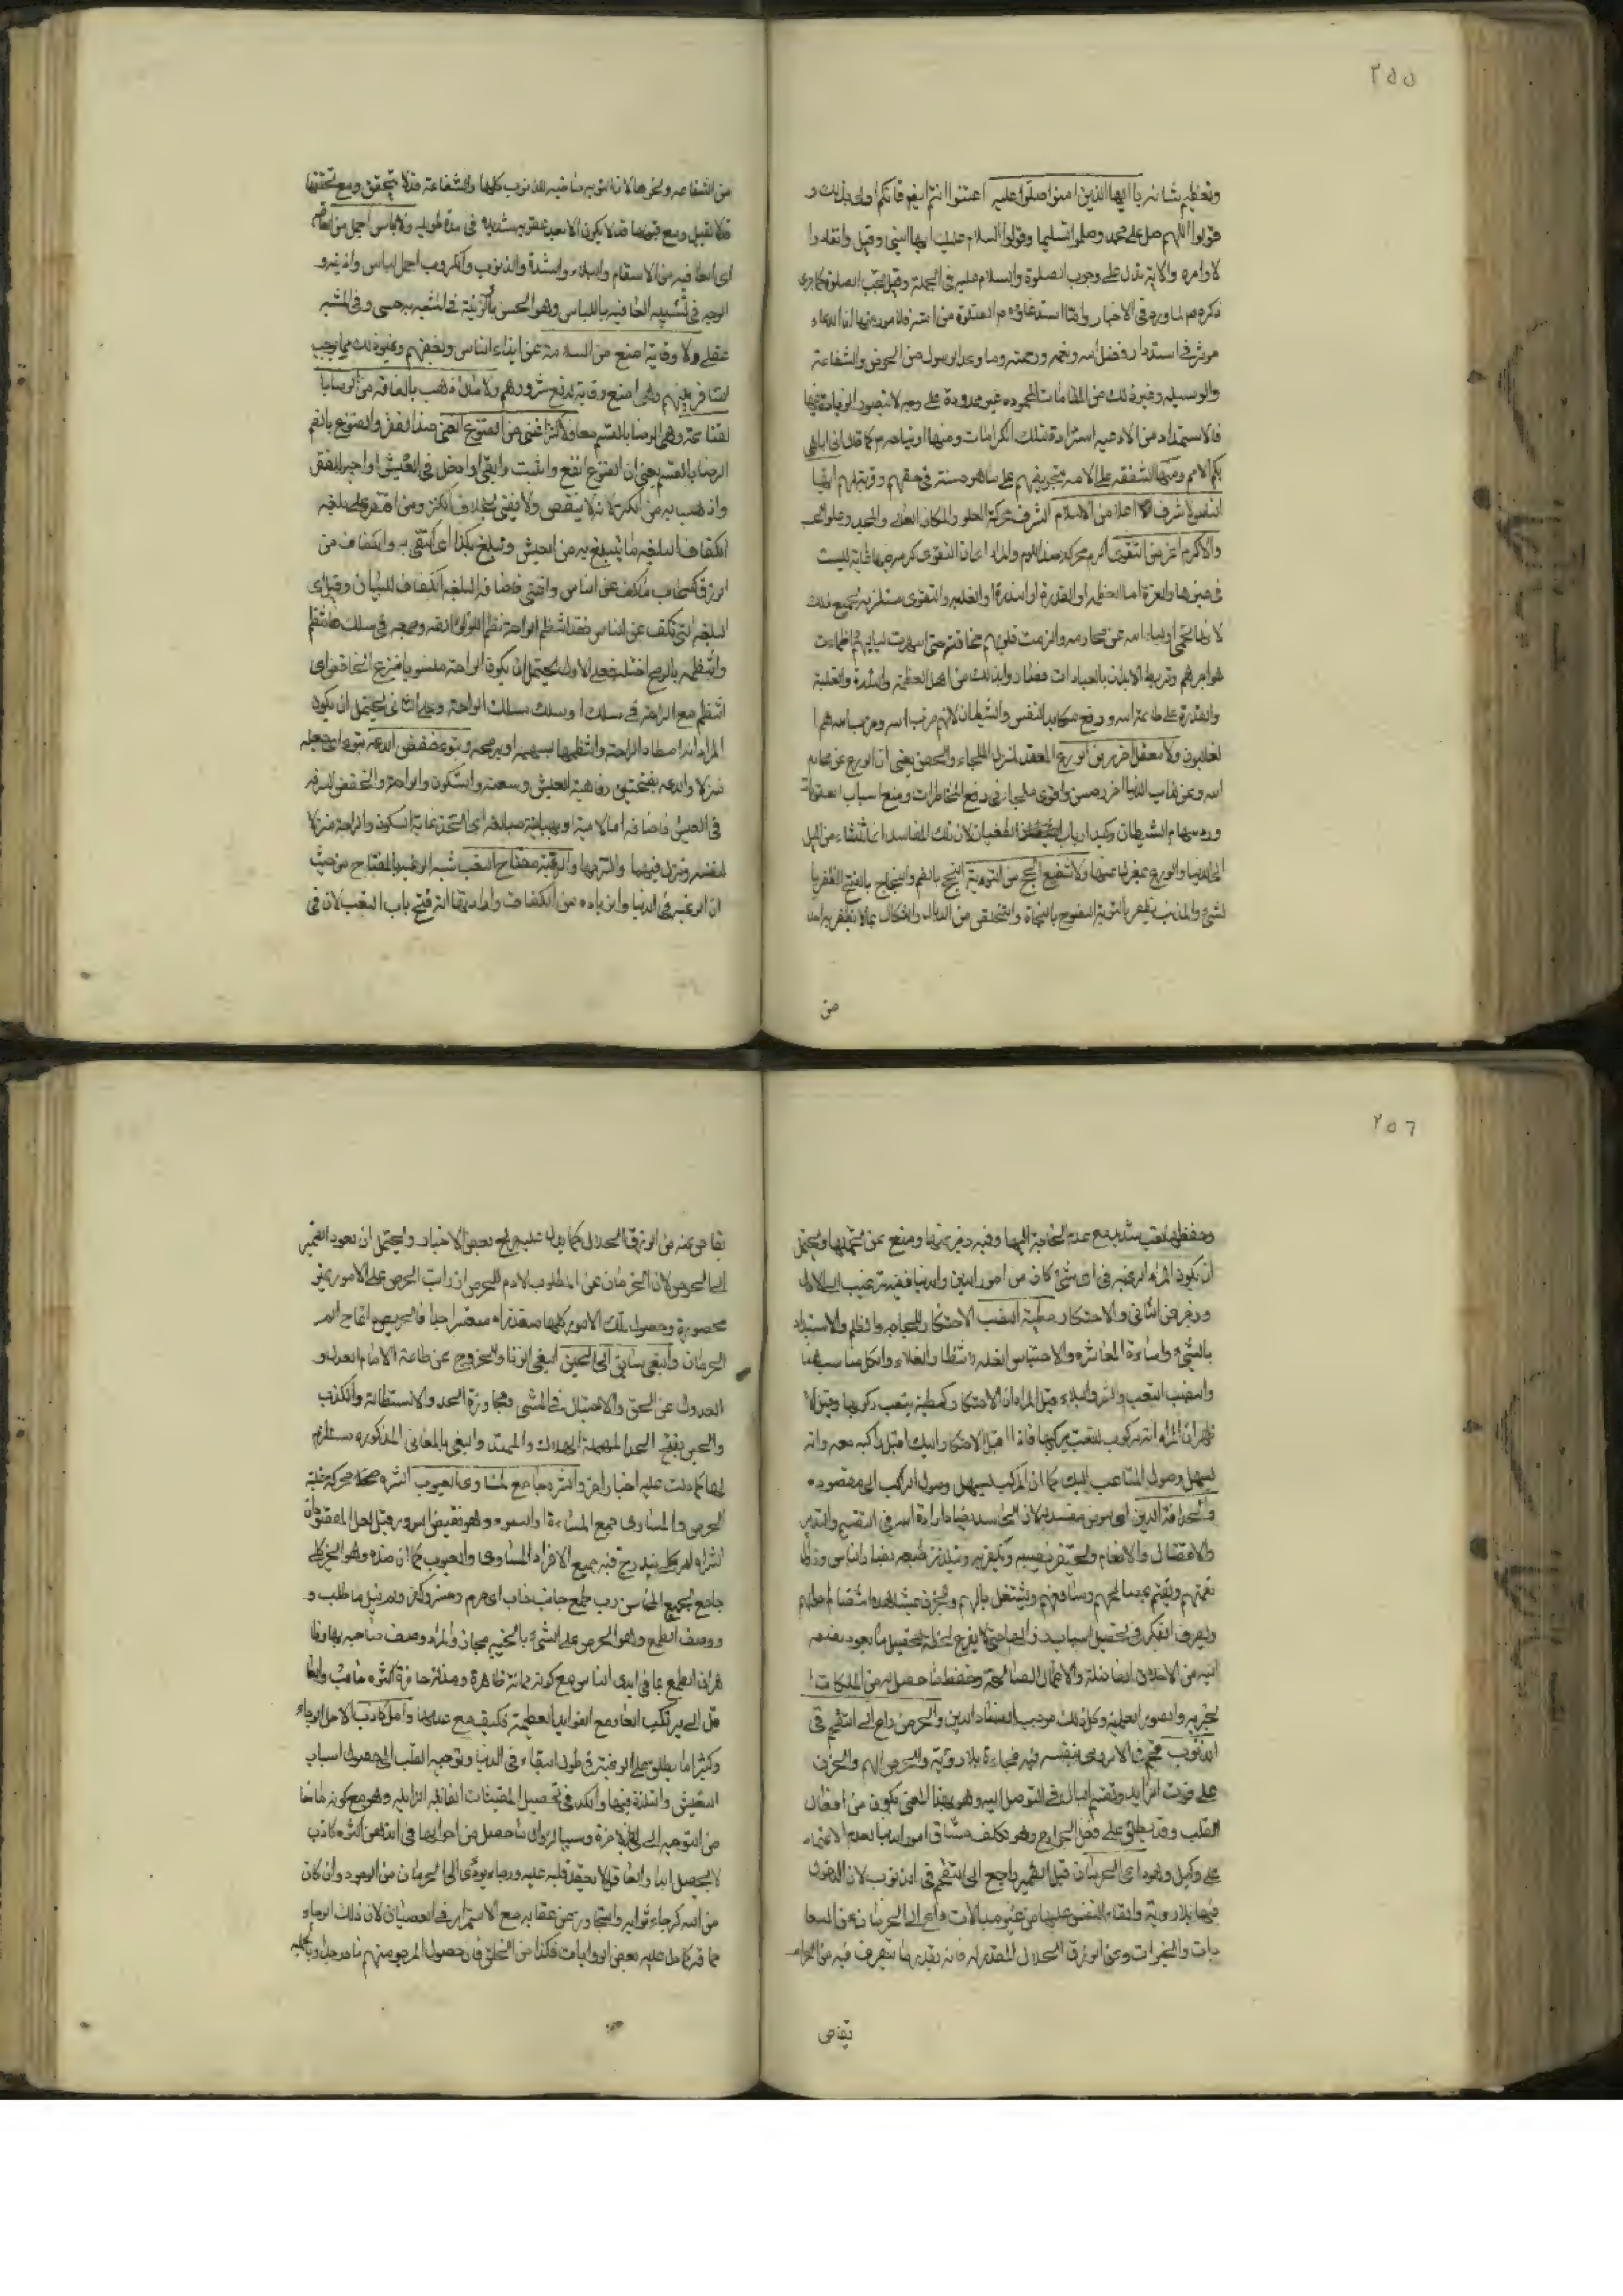 ٢٥٥
وتعظيم شانه يا ايها الذين امنوا صلوا عليه اعتنوا انتم ايضا فانكم اولى بذلك و
قولوا اللهم صل على محمد وسلموا تسليما وقولوا السلام عليك ايها النبي وقيل وانقادوا
لاوامره والاية تدل على وجوب الصلوة والسلام عليه في الجملة وقيل تجب الصلوة كلما جرى
ذكره لما ورد في الاخبار وانما استدعاؤه م الصلوة من امته فلامور منها ان الدعاء
موثر في استدرار فضل الله ونعمه ورحمته وما وعد الرسول من الحوض والشفاعة
والوسيله وغير ذلك من المقامات المحموده غير محدودة على وجه لا يتصور الزيادة فيها
فالاستمداد من الادعيه استزادة لتلك الكرامات ومنها ارتياحه م كما قال اني اباهي
بكم الامم ومنها الشفقه على الامه بتحريضهم على ما هو حسنة في حقهم وقربة لهم ايها
الناس لا شرف اعلا من الاسلام الشرف محركة العلو والمكان العالي والمجد وعلو الحسب
ولا كرم اعز من التقوى الكرم محركة ضد اللوم والمراد ان التقوى كرمه صاحبها ليست
في غيرها والعزة اما العظمه او القدرة او الشدة او الغلبه والتقوى مستلزمه لجميع ذلك
لانها تحمي اولياء الله عن محارمه والزمت قلوبهم مخافته حتى اسهرت لياليهم واظمات
هواجرهم وتربط الابدان بالعبادات فصاروا بذلك من اهل العظمة والشدة والغلبة
والقدرة على طاعة الله ودفع مكايد النفس والشيطان لانهم حزب الله وحزب الله هم ا
لغالبون ولا معقل احرز من الورع المعقل المنزل الملجاء والحصن يعني ان الورع عن محارم
الله وعن الدنيا احرز حصن واقوى ملجا في دفع المخاطرات ومنع اسباب العقوبات
ورد سهام الشيطان وكيد ارباب الطغيان لان تلك المفاسد انما تنشاء من الميل
الى الدنيا والورع بمعزل عنها ولا شفيع انجح من التوبة النجح بالضم والنجاح بالفتح الظفر با
لشيء والمذنب يظفر بالتوبة النصوح بالنجاة والتخلص من الوبال والنكال بما لا يظفر به احد
من
من الشفاعه ونحوها لان التوبه ماحيه للذنوب كلها والشفاعة قد لا تتحقق ومع تحققها
قد لا تقبل ومع قبولها قد لا يكون الا بعد عقوبه شديده في مدة طويله ولا لباس اجمل من العافيه
اى العافيه من الاسقام والبلاء والشدة والذنوب والكروب اجمل لباس وازينه و
الوجه في تشبيه العافيه باللباس وهو الحسن والزينة في المشبه به حسي وفي المشبه
عقلي ولا وقاية امنع من السلامة عن ايذاء الناس وبغضهم وغير ذلك مما يوجب
التنافر بينهم وهي امنع وقاية لدفع شرورهم ولا مال اذهب بالفاقه من الرضا با
لقناعة وهي الرضا بالقسم معا ولا كنز اغنى من القنوع الغنى ضد الفقر والقنوع بالضم
الرضا بالقسم يعني ان القنوع انفع واثبت وابقى وادخل في العيش واجبر للفقر
واذهب به من الكنز لانه لا ينقص ولا يفنى بخلاف الكنز ومن اقتصر على بلغة
الكفاف البلغه ما يتبلغ به من العيش وتبلغ بكذا اي اكتفى به والكفاف من
الرزق كسحاب ما كف عن الناس واغنى فاضافه البلغه الى الكفاف للبيان وقيل اي
البلغه التي تكف عن الناس فقد انتظم الراحة نظم اللؤلؤ الفه وجمعه في سلك فانتظم
وانتظمه بالرمح اختله فعلى الاول يحتمل ان يكون الراحة منصوبا بنزع الخافض اي
انتظم مع الراحة في سلك او سلك سلك الراحة وعلى الثاني يحتمل ان يكون
المراد انه اصطاد الراحة وانتظمها بسهمه او برمحه وتبوء خفض الدعة تبوء اى جعله
منزلا والدعه بفتحتين رفاهية العيش وسعته والسكون والراحة والخفض الدعه
في العيش فاضافه اما لامية او بيانيه مبالغه اى اتخذ غاية السكون والراحة منزلا
لنفسه ونزل فيها والتزمها والرغبة مفتاح التعب شبه الرغبه بالمفتاح من حيث
ان الرغبه في الدنيا والزياده من الكفاف وارادتها الة لفتح باب التعب لان في
٢٥٦
وحفظها تعب شديد مع عدم الحاجة اليها وفيه زجر عنها ومنع عن تحملها ويحتمل
ان يكون المراد الرغبه في اى شيء كان من امور الدين والدنيا ففيه ترغيب الى الاول
وزجر عن الثاني والاحتكار مطية النصب الاحتكار اللجاجه والظلم والاستبداد
بالشيء واساءة المعاشره والاحتباس للغله انتظارا لغلاء والكل مناسب هنا
والنصب التعب والشر والبلاء قيل المراد ان الاحتكار كمطية يتعب ركوبها وقيل ا
لمراد انه مركوب للتعب يركبها فاذا اقبل الاحتكار اليك اقبل راكبه معه وانه
يسهل وصول المتاعب اليك كما ان المركب يسهل وصول الراكب الى مقصوده
والحسد افة الدين اى مرض مفسد له لان الحاسد يضاد ارادة الله في التقسيم والتدبير
والافضال والانعام ويحتقر نصيبه ويلتذ طبعه بمضار الناس وزوال
نعمتهم ويغتم بمصالحهم ومنافعهم ويشتغل بالهم والحزن عند مشاهدة انتظام احوالهم
ويصرف الفكر في تحصيل اسباب زوالها حتى لا يفرغ لحظة لتحصيل ما يعود نفعه
اليه من الاخلاق الفاضلة والاعمال الصالحة وحفظ ما حصل له من الملكات ا
لخيريه والصور العلمية وكل ذلك موجب لفساد الدين والحرص داع الى التقحم في
الذنوب قحم في الامر رمى بنفسه فيه فجاءة بلا روية والحرص الهم والحزن
على فوت الزايد وتقسم البال في التوصل اليه وهو بهذا المعنى يكون من افعال
القلب وقد يطلق على فعل الجوارح وهو تكلف مشاق امور الدنيا بعدم الاعتماد
على وكيل وهو داعى الحرمان قيل الضمير راجع الى التقحم في الذنوب لان الدخول
فيها بلا روية والقاء النفس عليها من غير مبالات داع الى الحرمان عن السعا
دات والخيرات وعن الرزق الحلال المقدر له فانه بقدر ما يتصرف فيه من الحرام
يقاص
يقاص عنه من الرزق الحلال كما يدل عليه صريح بعض الاخبار ويحتمل ان يعود الضمير
الى الحرص لان الحرمان عن المطلوب لازم للحرص اذ راب الحرص على الامور غير
محصورة وحصول تلك الامور كلها متعذر او متعسر جدا فالحريص
الحرمان والبغي سايق الى الحين البغي الزنا والخروج عن طاعة الامام العدل و
العدول عن الحق والاختيال في المشي ومجاوزة الحد والاستطالة والكذب
والحين بفتح الحاء المهملة الهلاك والمحنة والبغي بالمعاني المذكوره مستلزم
لها كما دلت عليه اخبار اخر والشره جامع لمساوى العيوب الشره محركة غلبة
الحرص والمساوى جمع المساءة او السوء وهو نقيض السرور
الشره امر كلي يندرج فيه جميع الافراد المساوى والعيوب كما ان ضده وهو الخير كلي
جامع لجميع المحاسن رب طمع خائب خاب اى حرم وخسر وكفر ولم ينل ما طلب و
ووصف الطمع وهو الحرص على الشيء بالخيبه مجاز والمراد وصف صاحبه بها وفا
هر ان الطمع بما في ايدى الناس مع كونه مذلة ظاهرة ومنقصة حاضرة اكثره خائب وايضا
قل الى يرتكب العار مع الفوائد العظيمة فكيف مع عدمها وامل كاذب الامل الرجاء
وكثيرا ما يطلق على الرغبة في طول البقاء في الدنيا وتوجيه القلب الى حصول اسباب
التعيش والتلذذ فيها والكد في تحصيل المقتنيات الفانيه الزايله وهو مع كونه مانعا
من التوجه الى الاخرة وسببا لزوال ما حصل من احوالها في الذهن اكثره كاذب
لا يحصل ابدا والعاقل لا يعقد قلبه عليه ورجاء يودى الى الحرمان من المرجو وان كان
من الله كرجاء ثوابه والتجاوز عن عقابه مع الاستمرار في العصيان لان ذلك الرجاء
حماقة كما دل عليه بعض الروايات فكذا من الخلق فان حصول المرجو منهم